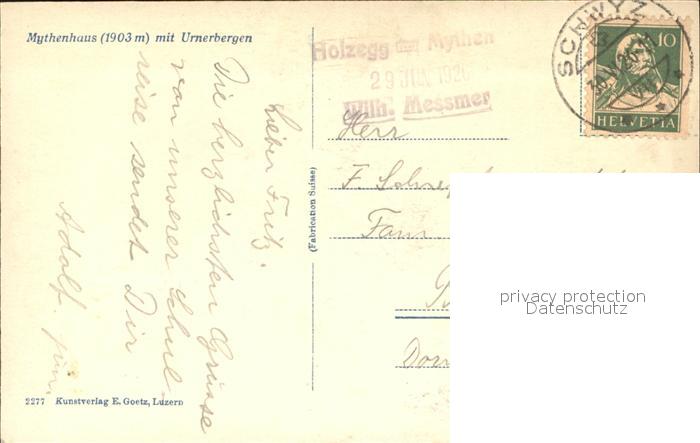 Mythenhaus (1903 m) mit Urnerbergen
Lieber Fritz.
Die herzlichsten Grüsse
von unserer Schul-
reise sendet Dir
Adolf. jun.
2277 Kunstverlag E. Goetz, Luzern
(Fabrication Suisse)
Holzegg Mythen
29 JUN 1926
Wilh. Messmer
SCHWYZ
10
HELVETIA
Herr
F.
Fam
Dorn
privacy protection
Datenschutz